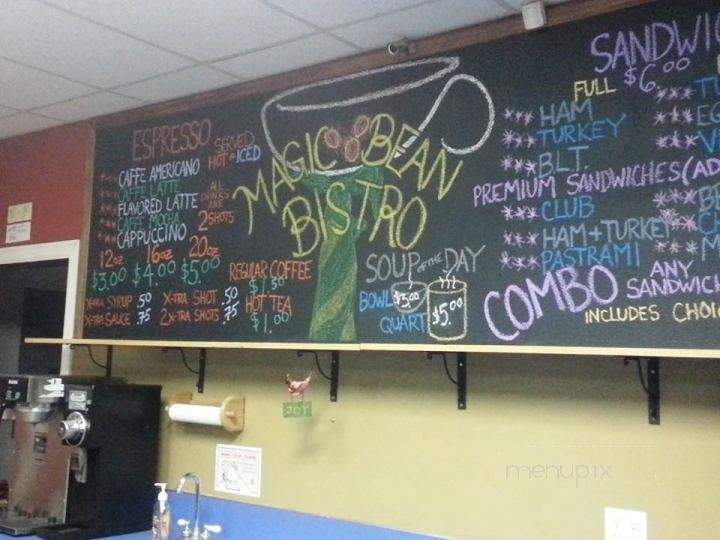 ESPRESSO SERVED HOT OR ICED
CAFFE AMERICANO
CAFFE LATTE
FLAVORED LATTE
CAFFE MOCHA
CAPPUCCINO
ALL DRINKS ARE 2 SHOTS
12oz 16oz 20oz
$3.00 $4.00 $5.00
X-TRA SYRUP .50 X-TRA SHOT .50
X-TRA SAUCE .75 2X-TRA SHOTS .75
REGULAR COFFEE
$1.50
HOT TEA
$1.00
MAGIC BEAN
BISTRO
SOUP OF THE DAY
BOWL $3.00
QUART $5.00
SANDWI
$6.00
FULL
HAM
TURKEY
BLT.
PREMIUM SANDWICHES (AD
CLUB
HAM+TURKEY
PASTRAMI
COMBO ANY
SANDWICH
INCLUDES CHOI
JOY
menupix